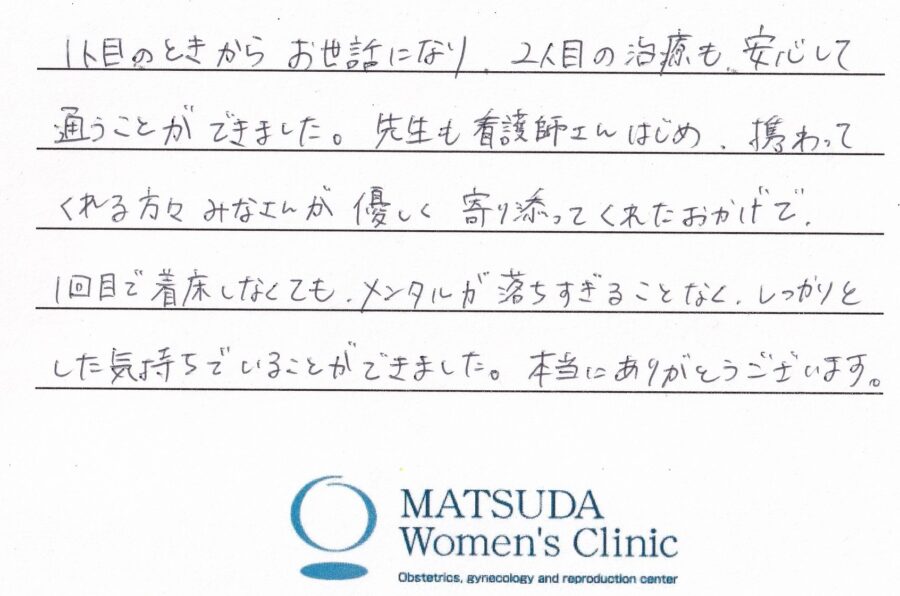 1人目のときから お世話になり、2人目の治療も、安心して
通うことが できました。先生も看護師さんはじめ、携わって
くれる方々 みなさんが 優しく 寄り添ってくれたおかげで、
1回目で着床しなくても、メンタルが落ちすぎることなく、しっかりと
した気持ちでいることができました。本当にありがとうございます。
MATSUDA
Women's Clinic
Obstetrics, gynecology and reproduction center